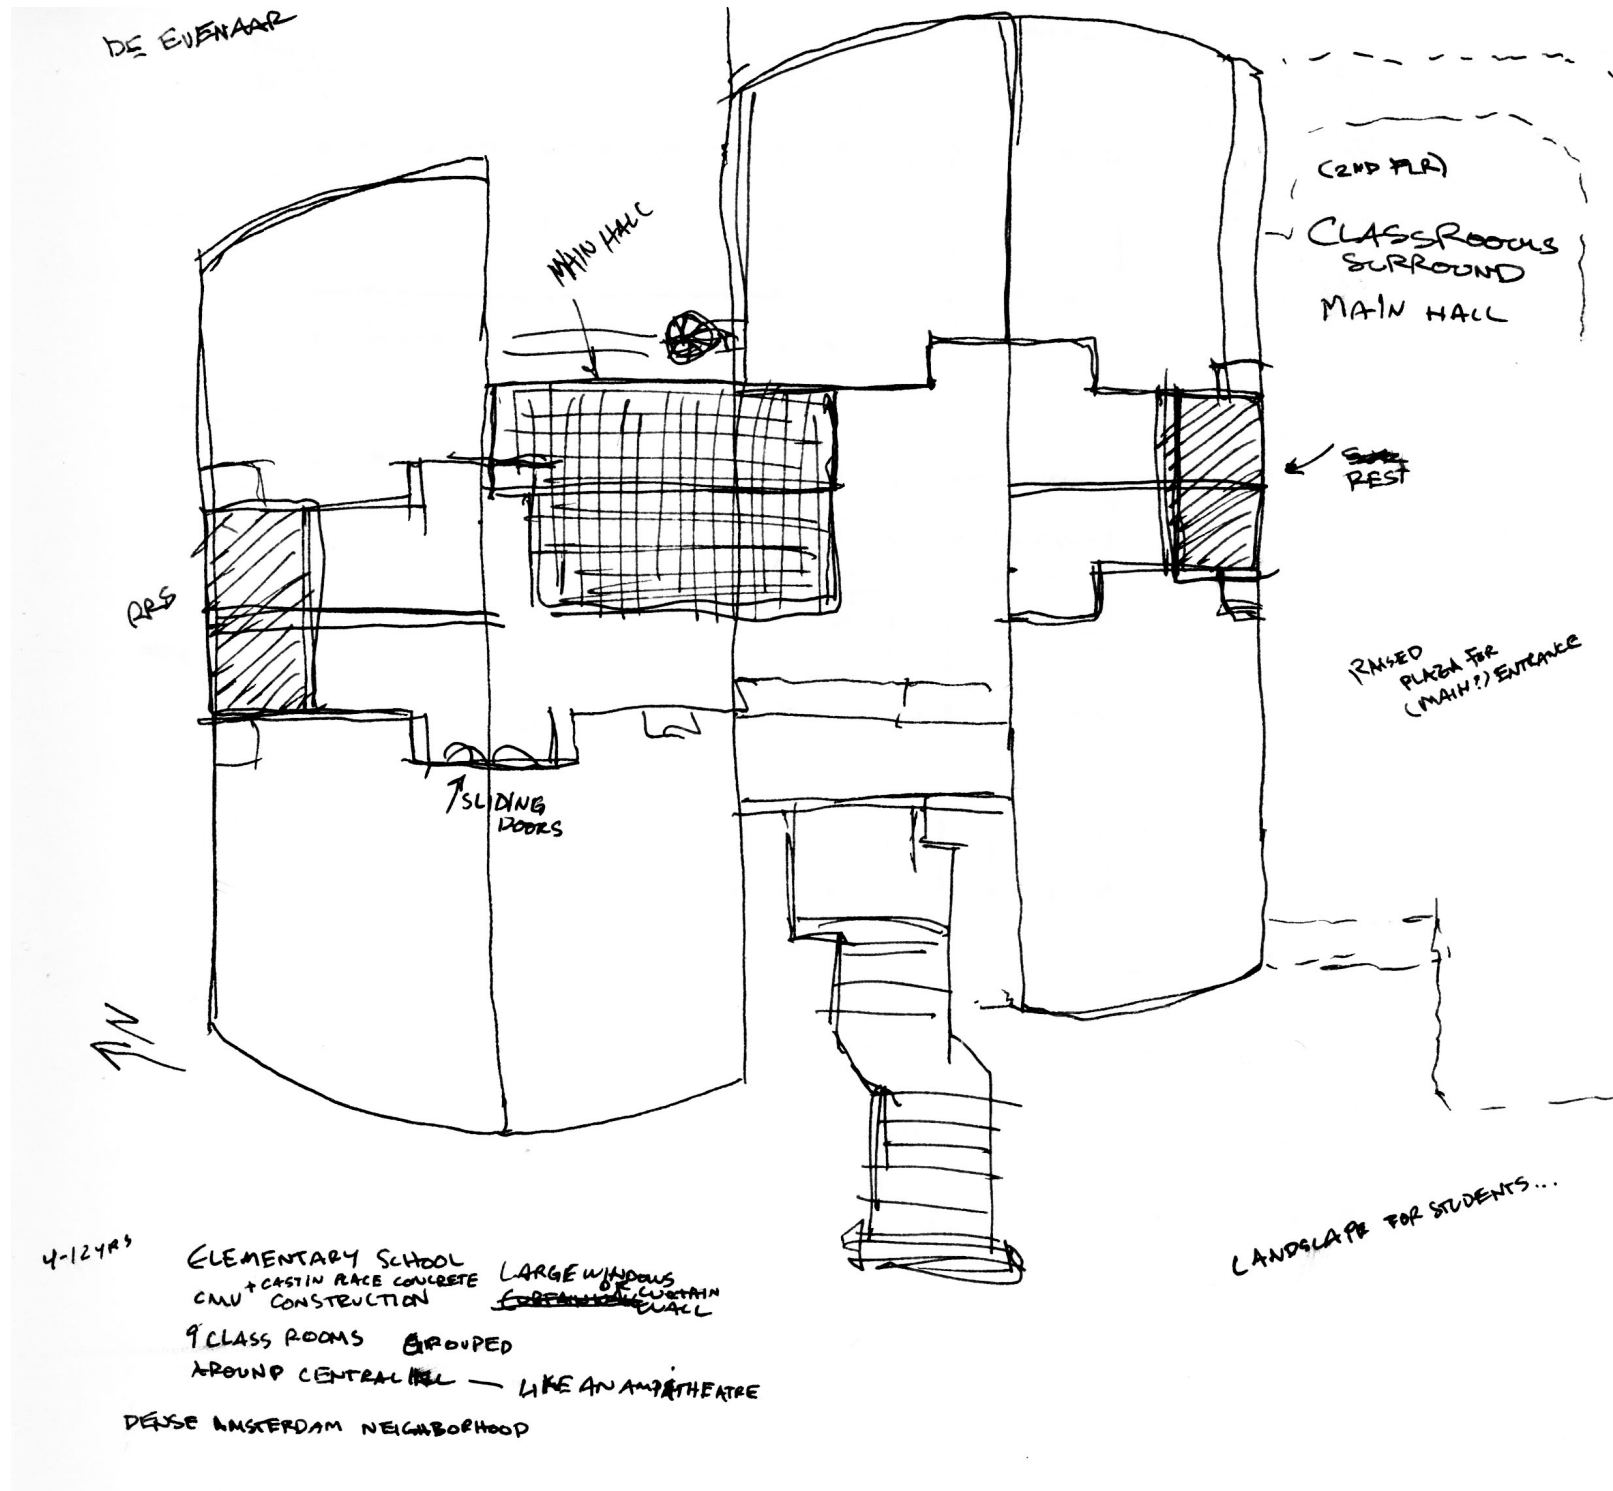 DE EVENAAR
(2ND FLR)
CLASSROOMS
SURROUND
MAIN HALL
MAIN HALL
REST
RRS
RAISED
PLAZA FOR
(MAIN?) ENTRANCE
SLIDING
DOORS
N
LANDSCAPE FOR STUDENTS...
4-12 YRS
ELEMENTARY SCHOOL
+ CAST IN PLACE CONCRETE
CMU CONSTRUCTION
LARGE WINDOWS
OR CURTAIN
WALL
9 CLASS ROOMS GROUPED
AROUND CENTRAL — LIKE AN AMPITHEATRE
DENSE AMSTERDAM NEIGHBORHOOD